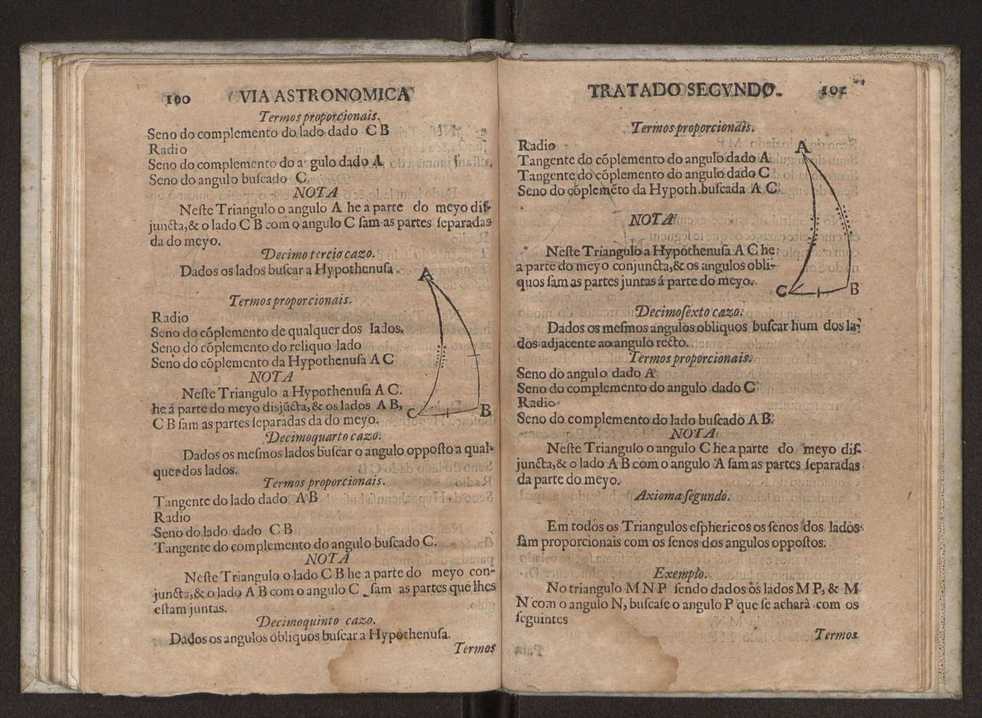 100 VIA ASTRONOMICA
Termos proporcionais.
Seno do complemento do lado dado C B
Radio
Seno do complemento do a gulo dado A
Seno do angulo buſcado C
NOTA
Neſte Triangulo o angulo A he a parte do meyo diſ-
juncta,& o lado C B com o angulo C ſam as partes ſeparadas
da do meyo.
Decimo tercio cazo.
Dados os lados buſcar a Hypothenuſa
A
Termos proporcionais.
Radio
Seno do cõplemento de qualquer dos lados.
Seno do cõplemento do reliquo lado
Seno do cõplemento da Hypothenuſa A C
NOTA
Neſte Triangulo a Hypothenuſa A C.
he á parte do meyo disjũcta,& os lados A B,
C B ſam as partes ſeparadas da do meyo.
C B
Decimoquarto cazo.
Dados os meſmos lados buſcar o angulo oppoſto a qual-
quer dos lados.
Termos proporcionais.
Tangente do lado dado A B
Radio
Seno do lado dado C B
Tangente do complemento do angulo buſcado C.
NOTA
Neſte Triangulo o lado C B he a parte do meyo con-
juncta,& o lado A B com o angulo C ſam as partes que lhes
eſtam juntas.
Decimoquinto cazo.
Dados os angulos obliquos buſcar a Hypothenuſa.
Termos
TRATADO SEGVNDO. 101
Termos proporcionais.
Radio
Tangente do cõplemento do angulo dado A
Tangente do cõplemento do angulo dado C
Seno do cõplemẽto da Hypoth. buſcada A C
A
NOTA
Neſte Triangulo a Hypothenuſa A C he
a parte do meyo conjuncta,& os angulos obli-
quos ſam as partes juntas á parte do meyo.
C B
Decimoſexto cazo.
Dados os meſmos angulos obliquos buſcar hum dos la-
dos adjacente ao angulo recto.
Termos proporcionais.
Seno do angulo dado A
Seno do complemento do angulo dado C
Radio
Seno do complemento do lado buſcado A B.
NOTA
Neſte Triangulo o angulo C he a parte do meyo diſ-
juncta,& o lado A B com o angulo A ſam as partes ſeparadas
da parte do meyo.
Axioma ſegundo.
Em todos os Triangulos eſphericos os ſenos dos lados
ſam proporcionais com os ſenos dos angulos oppoſtos.
Exemplo.
No triangulo M N P ſendo dados os lados M P, & M
N com o angulo N, buſcaſe o angulo P que ſe achará com os
ſeguintes
Termos